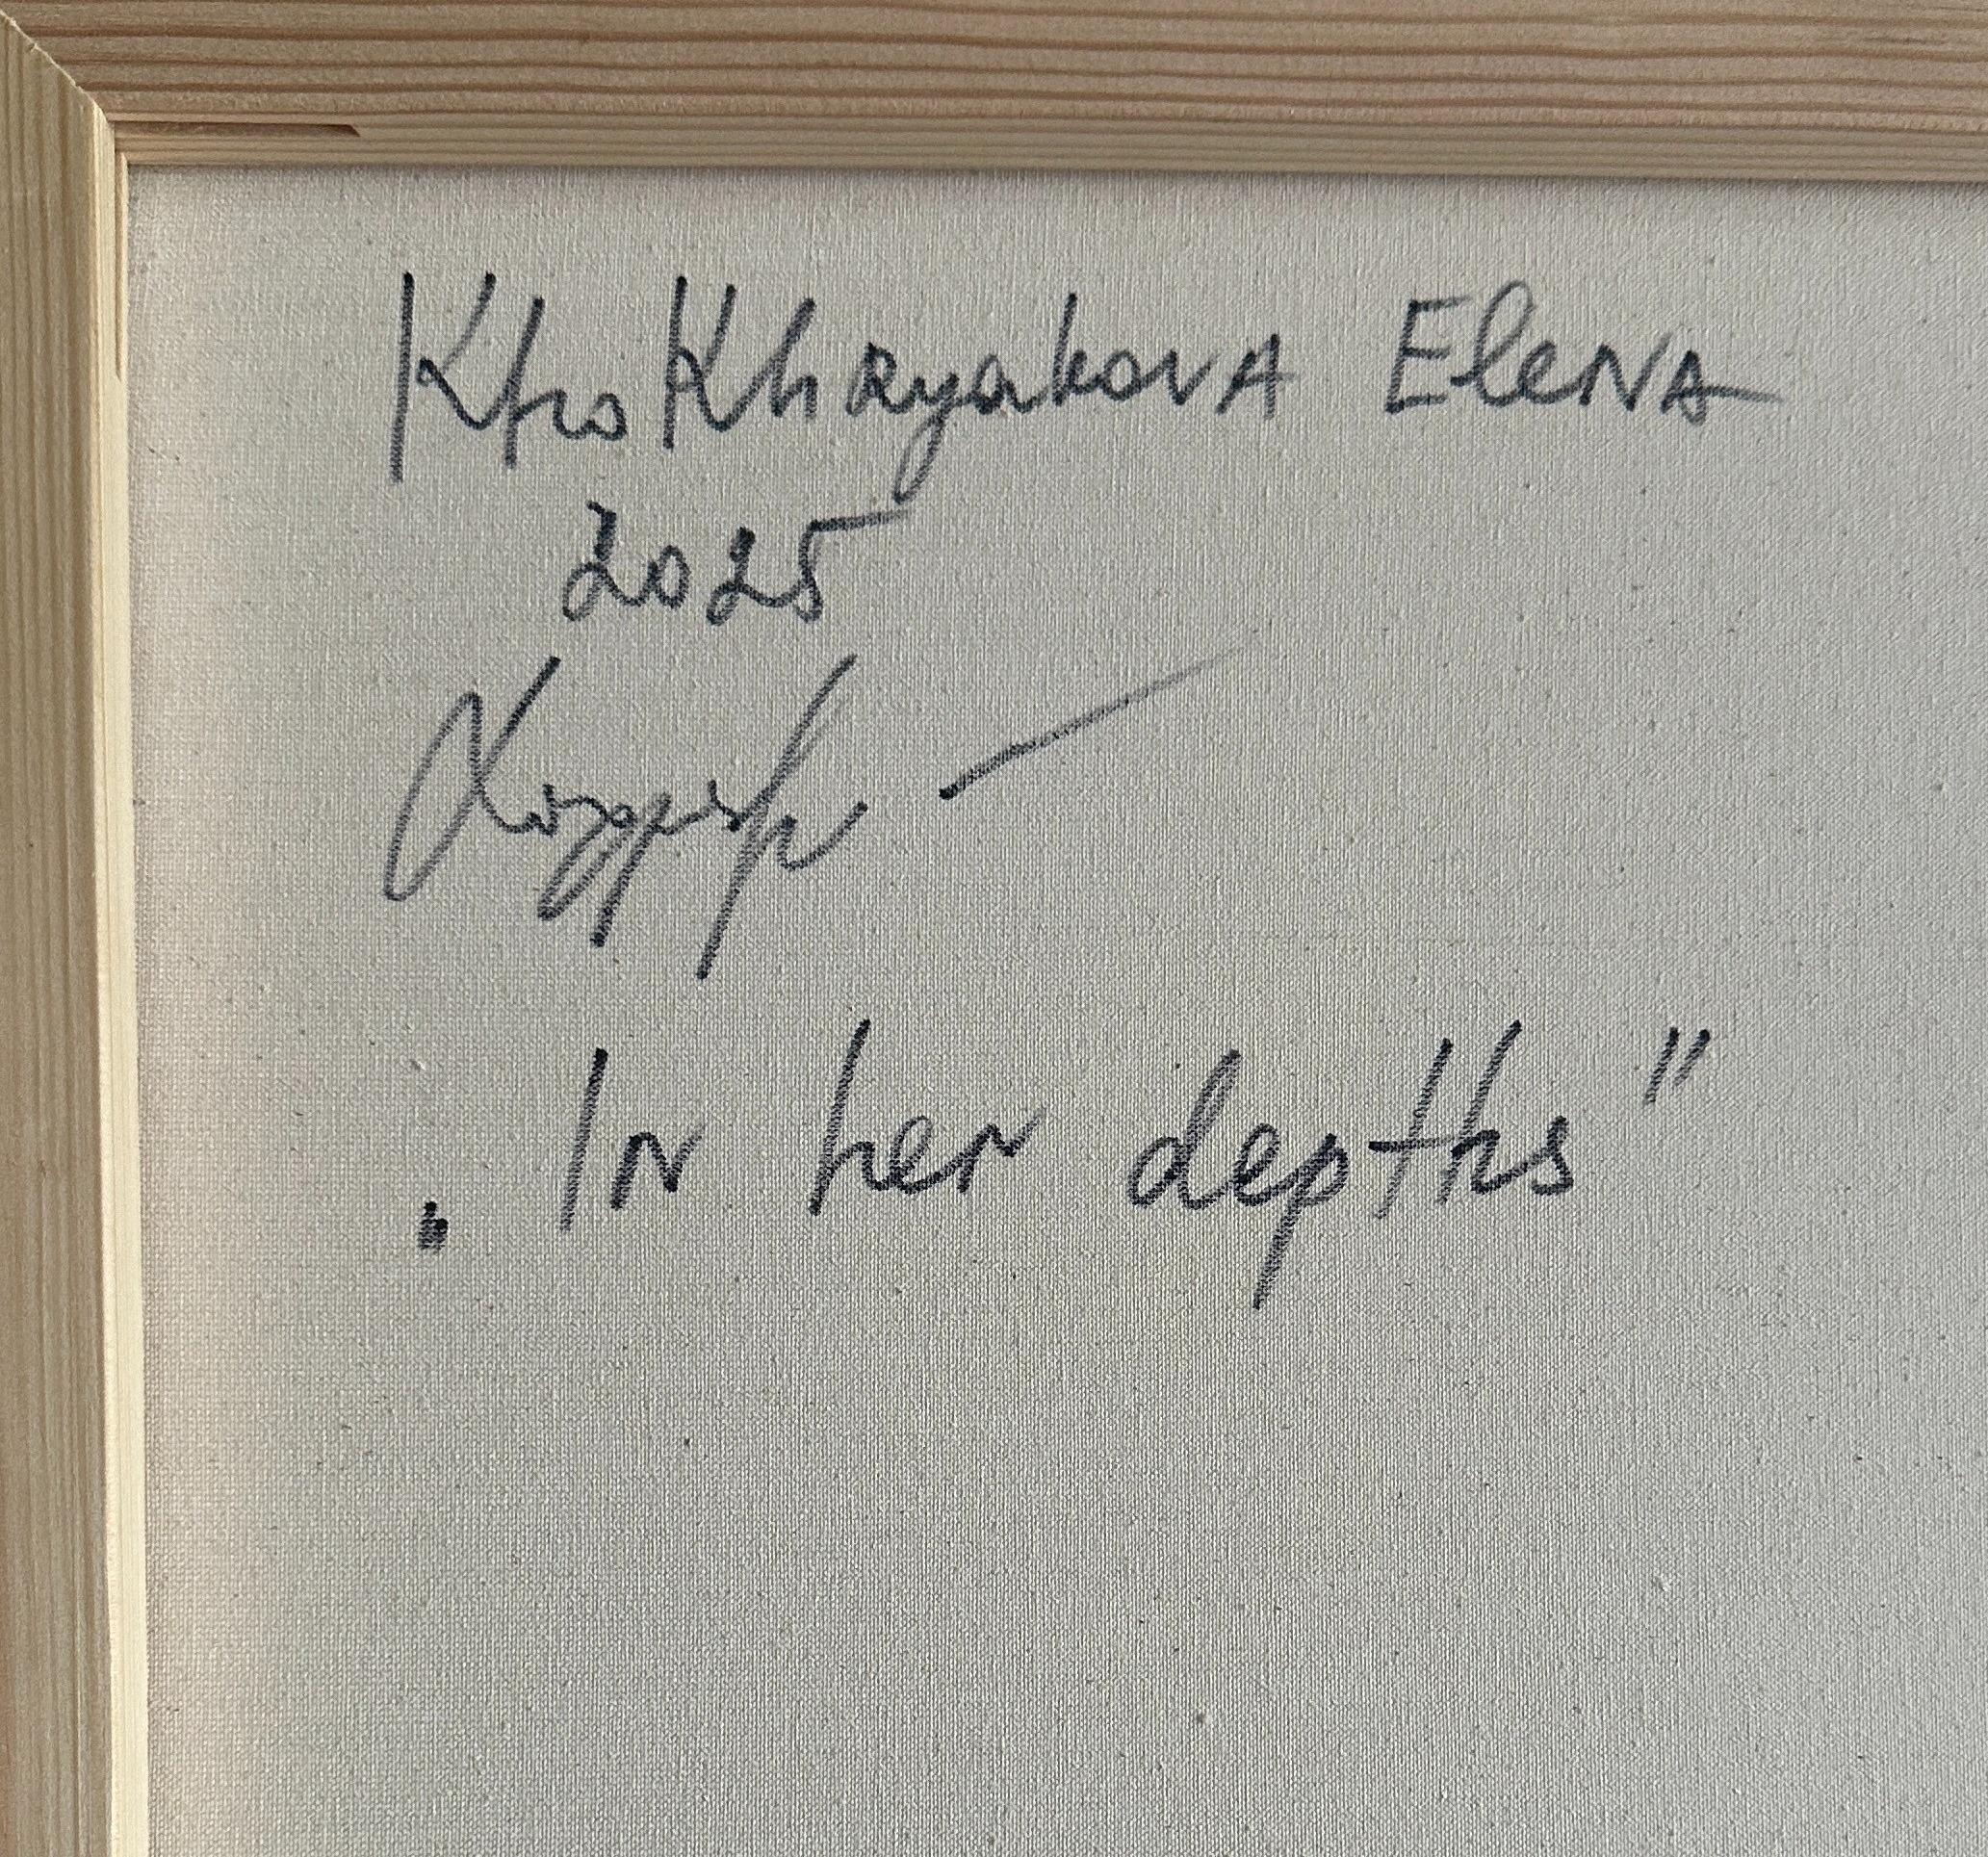 KhoKhryakova Elena
2025
„In her depths"